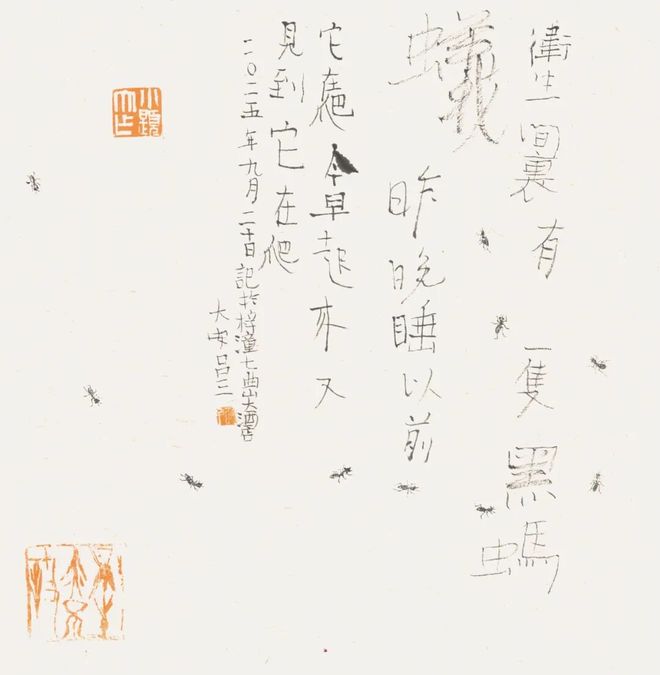 衛生間裏有一隻黑螞
蟻昨晚睡以前
它在爬今早起来又
見到它在爬
二〇二五年九月二十日記於梓潼七曲山大酒店
大安吕三